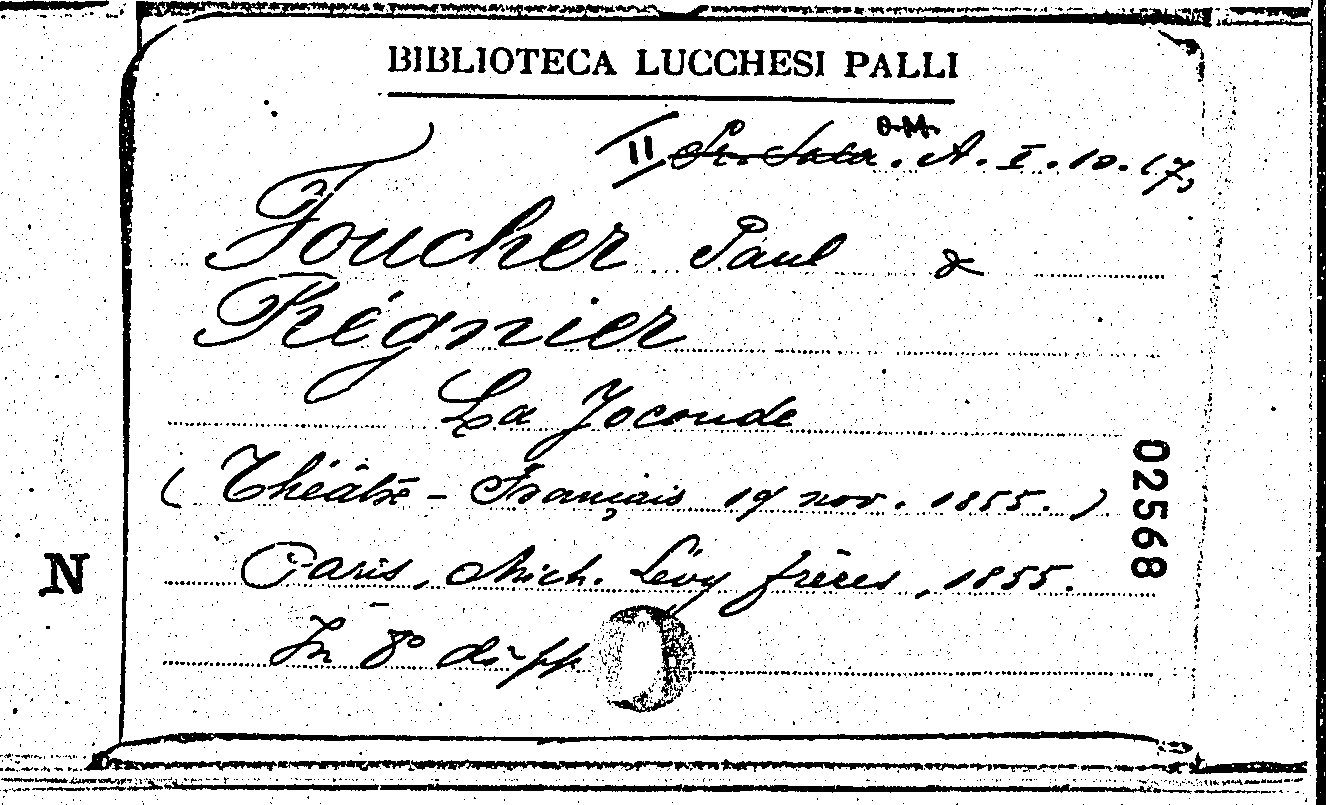 BIBLIOTECA LUCCHESI PALLI
II Pr. Sala. O.M. A. I. 10. 17,
Foucher Paul &
Régnier
La Joconde
(Théâtre - Français 19 nov. 1855.)
Paris, Mich. Lévy frères, 1855.
In 8º di pp
02568
N